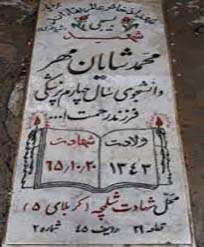 شهید
محمد شایان مهر
دانشجوی سال چهارم پزشکی
فرزند رحمت ا...
ولادت شهادت
۱۳۴۳ ۶۵٫۱۰٫۲۰
محل شهادت شلمچه (کربلای ۵)
قطعه ۲۱ ردیف ۴۵ شماره ۲